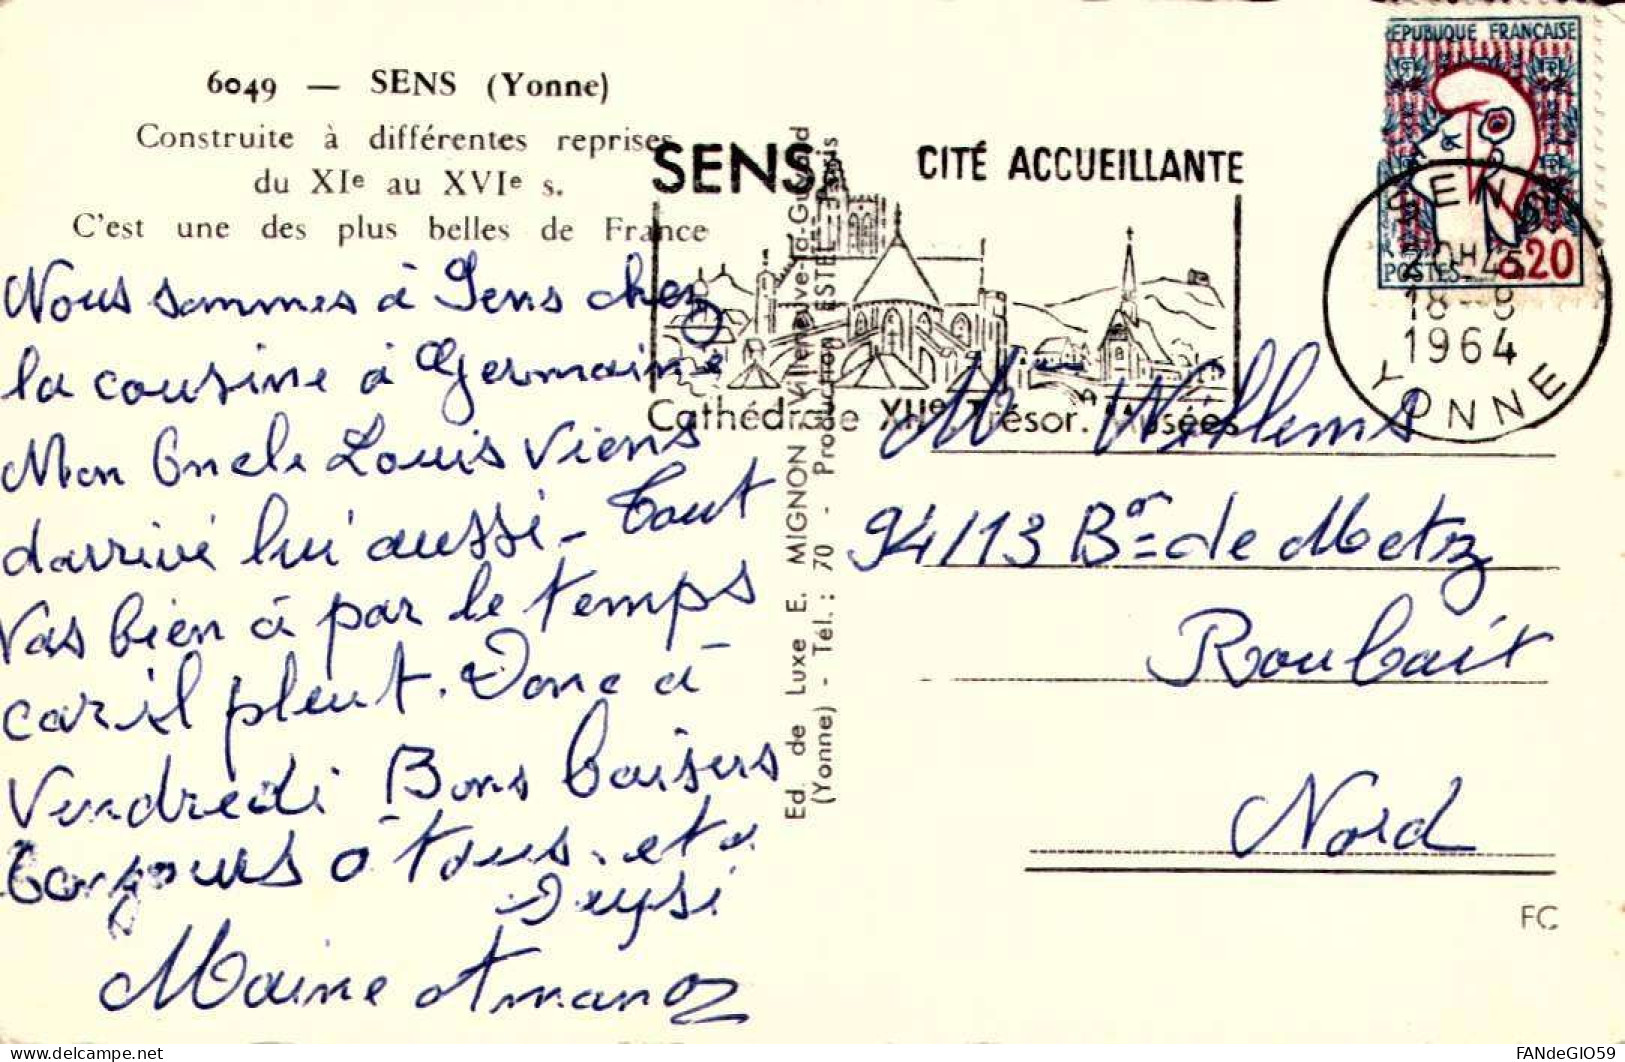 6049 — SENS (Yonne)
Construite à différentes reprises
du XIe au XVIe s.
C'est une des plus belles de France
Nous sommes à Sens chez
la cousine à Germaine
Mon Oncle Louis viens
darrivé lui aussi - tout
vas bien à par le temps
car il pleut. Donc à
Vendredi Bons baisers
à tous. et a
Deysi
SENS
CITÉ ACCUEILLANTE
Cathédrale XIIe Trésor. Musées
REPUBLIQUE FRANCAISE
POSTES 0,20
SENS
18 - 8
1964
YONNE
Ed. de Luxe E. MIGNON - Villeneuve-la-Guyard
(Yonne) - Tél. : 70 - Production ESTEL Paris
Mr Willems
94/13 Bd de Metz
Roubaix
Nord
FC
FANdeGIO59